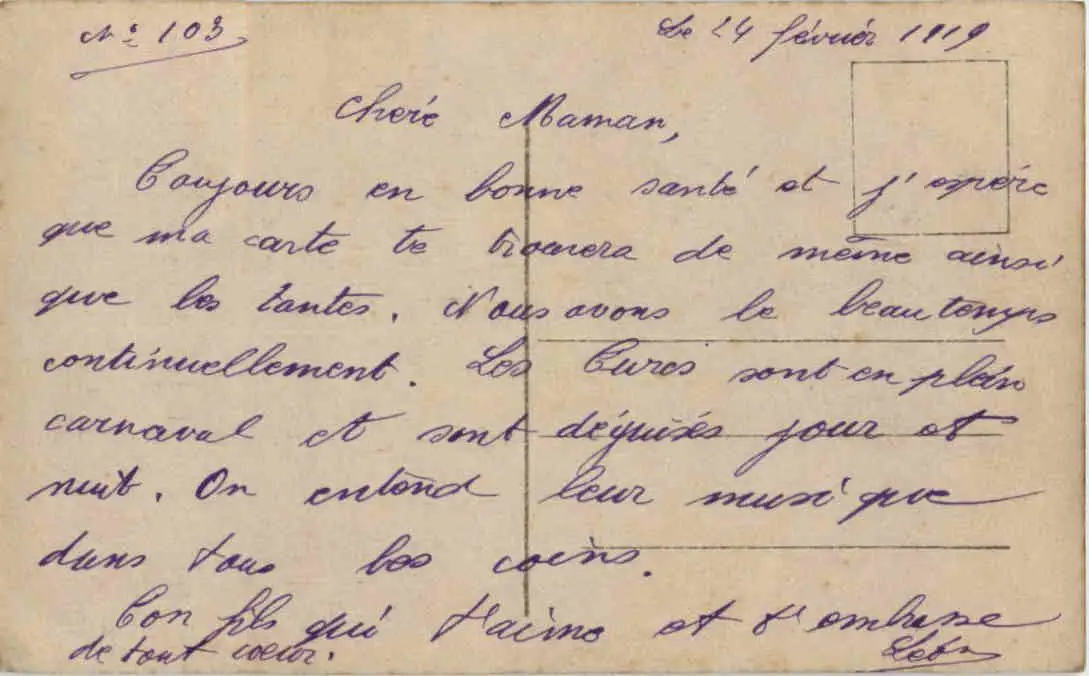 N° 103.
Le 24 février 1919
Chère Maman,
Toujours en bonne santé et j'espère
que ma carte te trouvera de même ainsi
que les tantes. Nous avons le beau temps
continuellement. Les Turcs sont en plein
carnaval et sont déguisés jour et
nuit. On entend leur musique
dans tous les coins.
Ton fils qui t'aime et t'embrasse
de tout coeur.
Léon